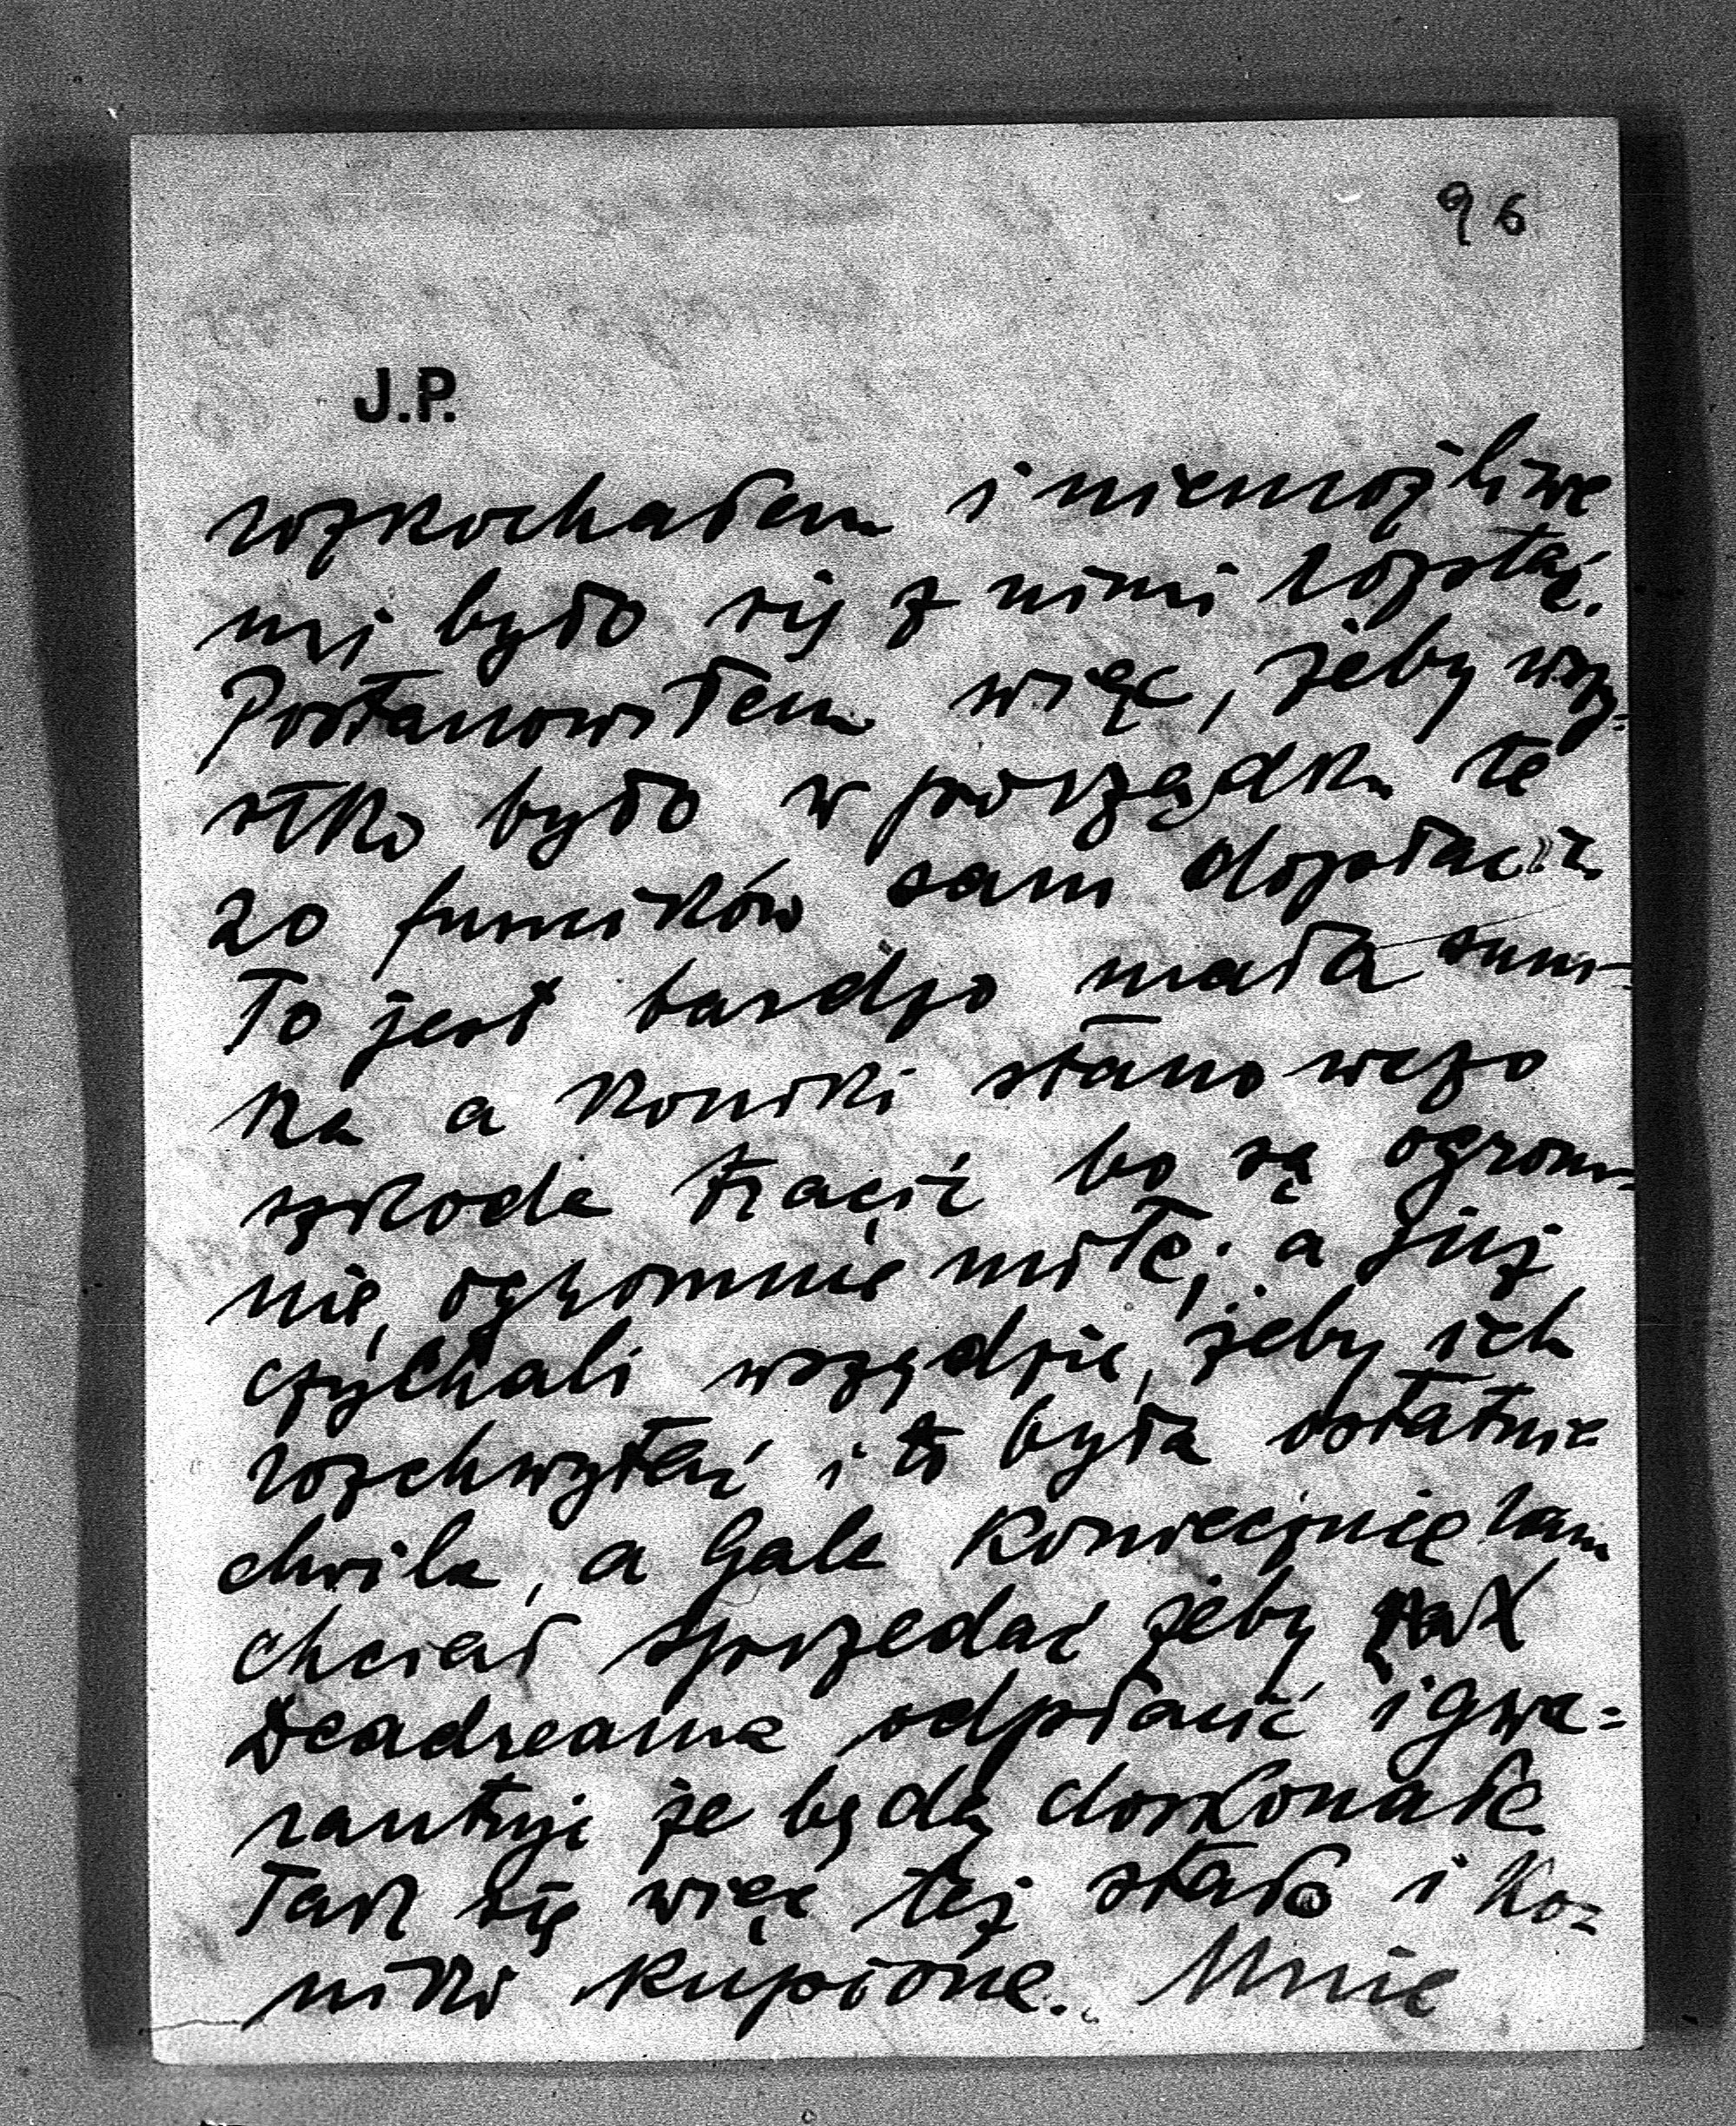 96
J.P.
rozkochałem i niemożliwe
mi było się z nimi rozstać.
Postanowiłem więc, żeby wszy=
stko było w porządku te
20 funcików sam dopłacić.
To jest bardzo mała sum=
ka a koniki stanowczo
szkoda tracić bo są ogrom=
nie, ogromnie miłe; a już
czyhali wszędzie, żeby ich
rozchwytać i to była ostatnia
chwila, a Gale koniecznie tam
chciał sprzedać żeby
odpłacić i gwa=
rantuje że będą doskonałe.
Tak się więc też stało i ko=
niki kupione. Mnie